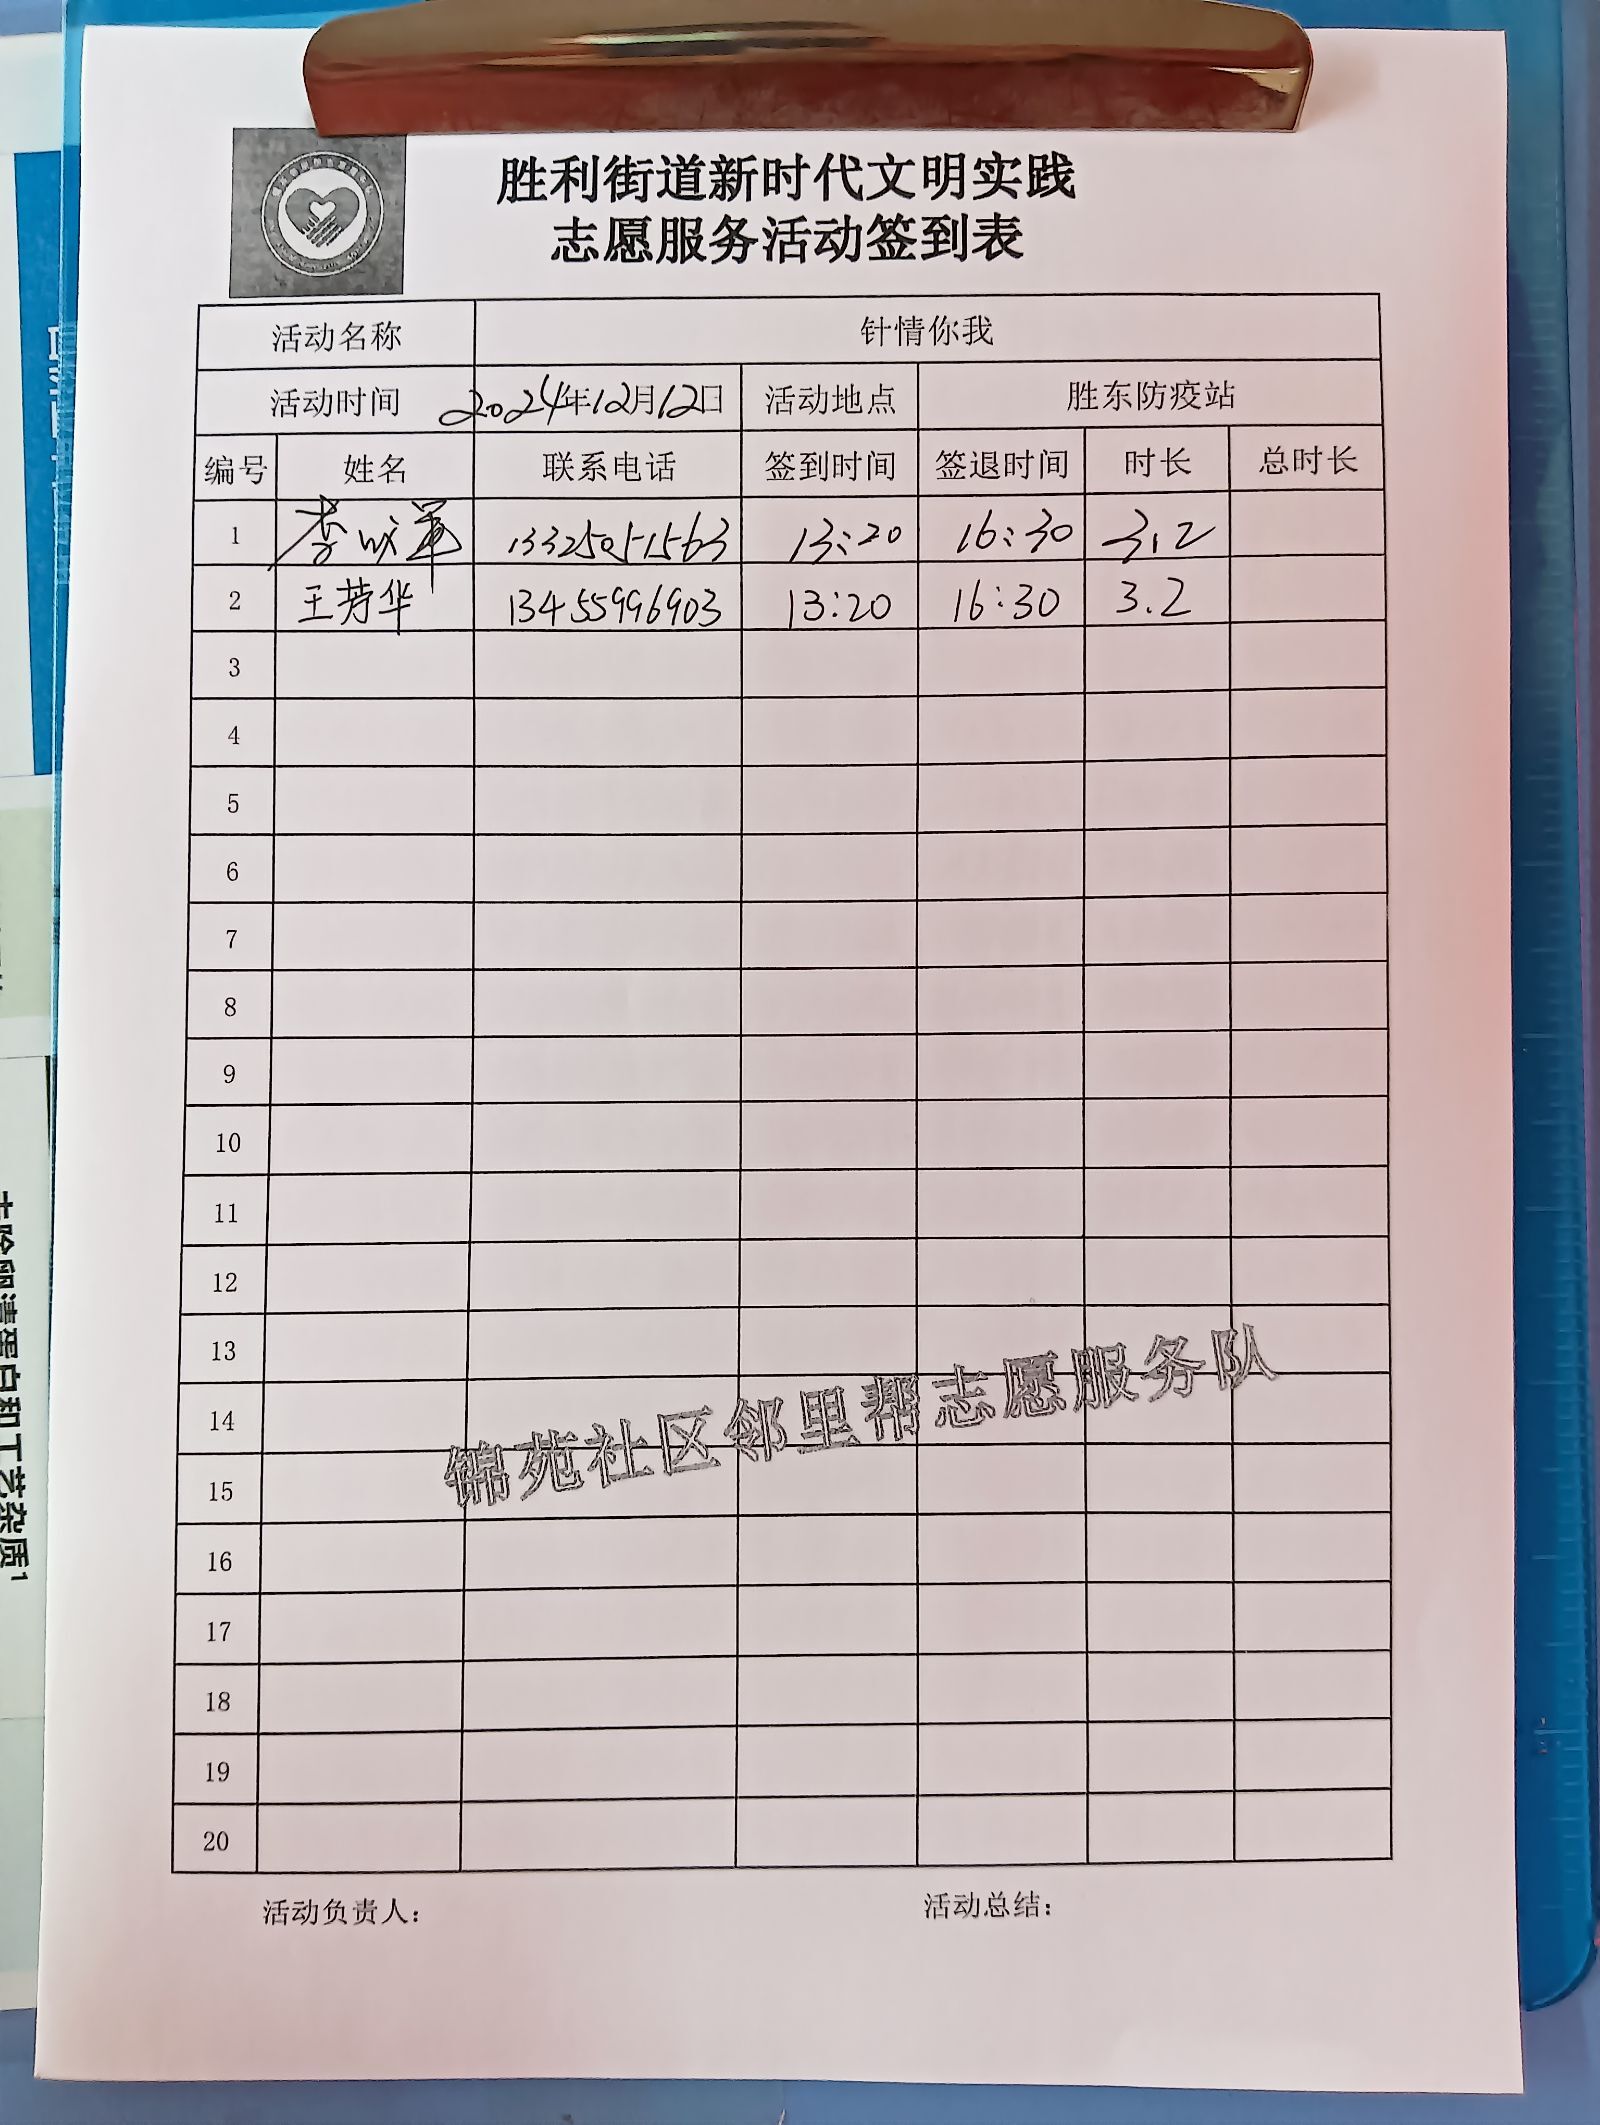 胜利街道新时代文明实践
志愿服务活动签到表
活动名称 针情你我
活动时间 2024年12月12日 活动地点 胜东防疫站
编号 姓名 联系电话 签到时间 签退时间 时长 总时长
1 李 军 13325051563 13:20 16:30 3.2
2 王芳华 13455996903 13:20 16:30 3.2
3
4
5
6
7
8
9
10
11
12
13
14
15
16
17
18
19
20
锦苑社区邻里帮志愿服务队
活动负责人: 活动总结:
卵清蛋白和工艺杂质1